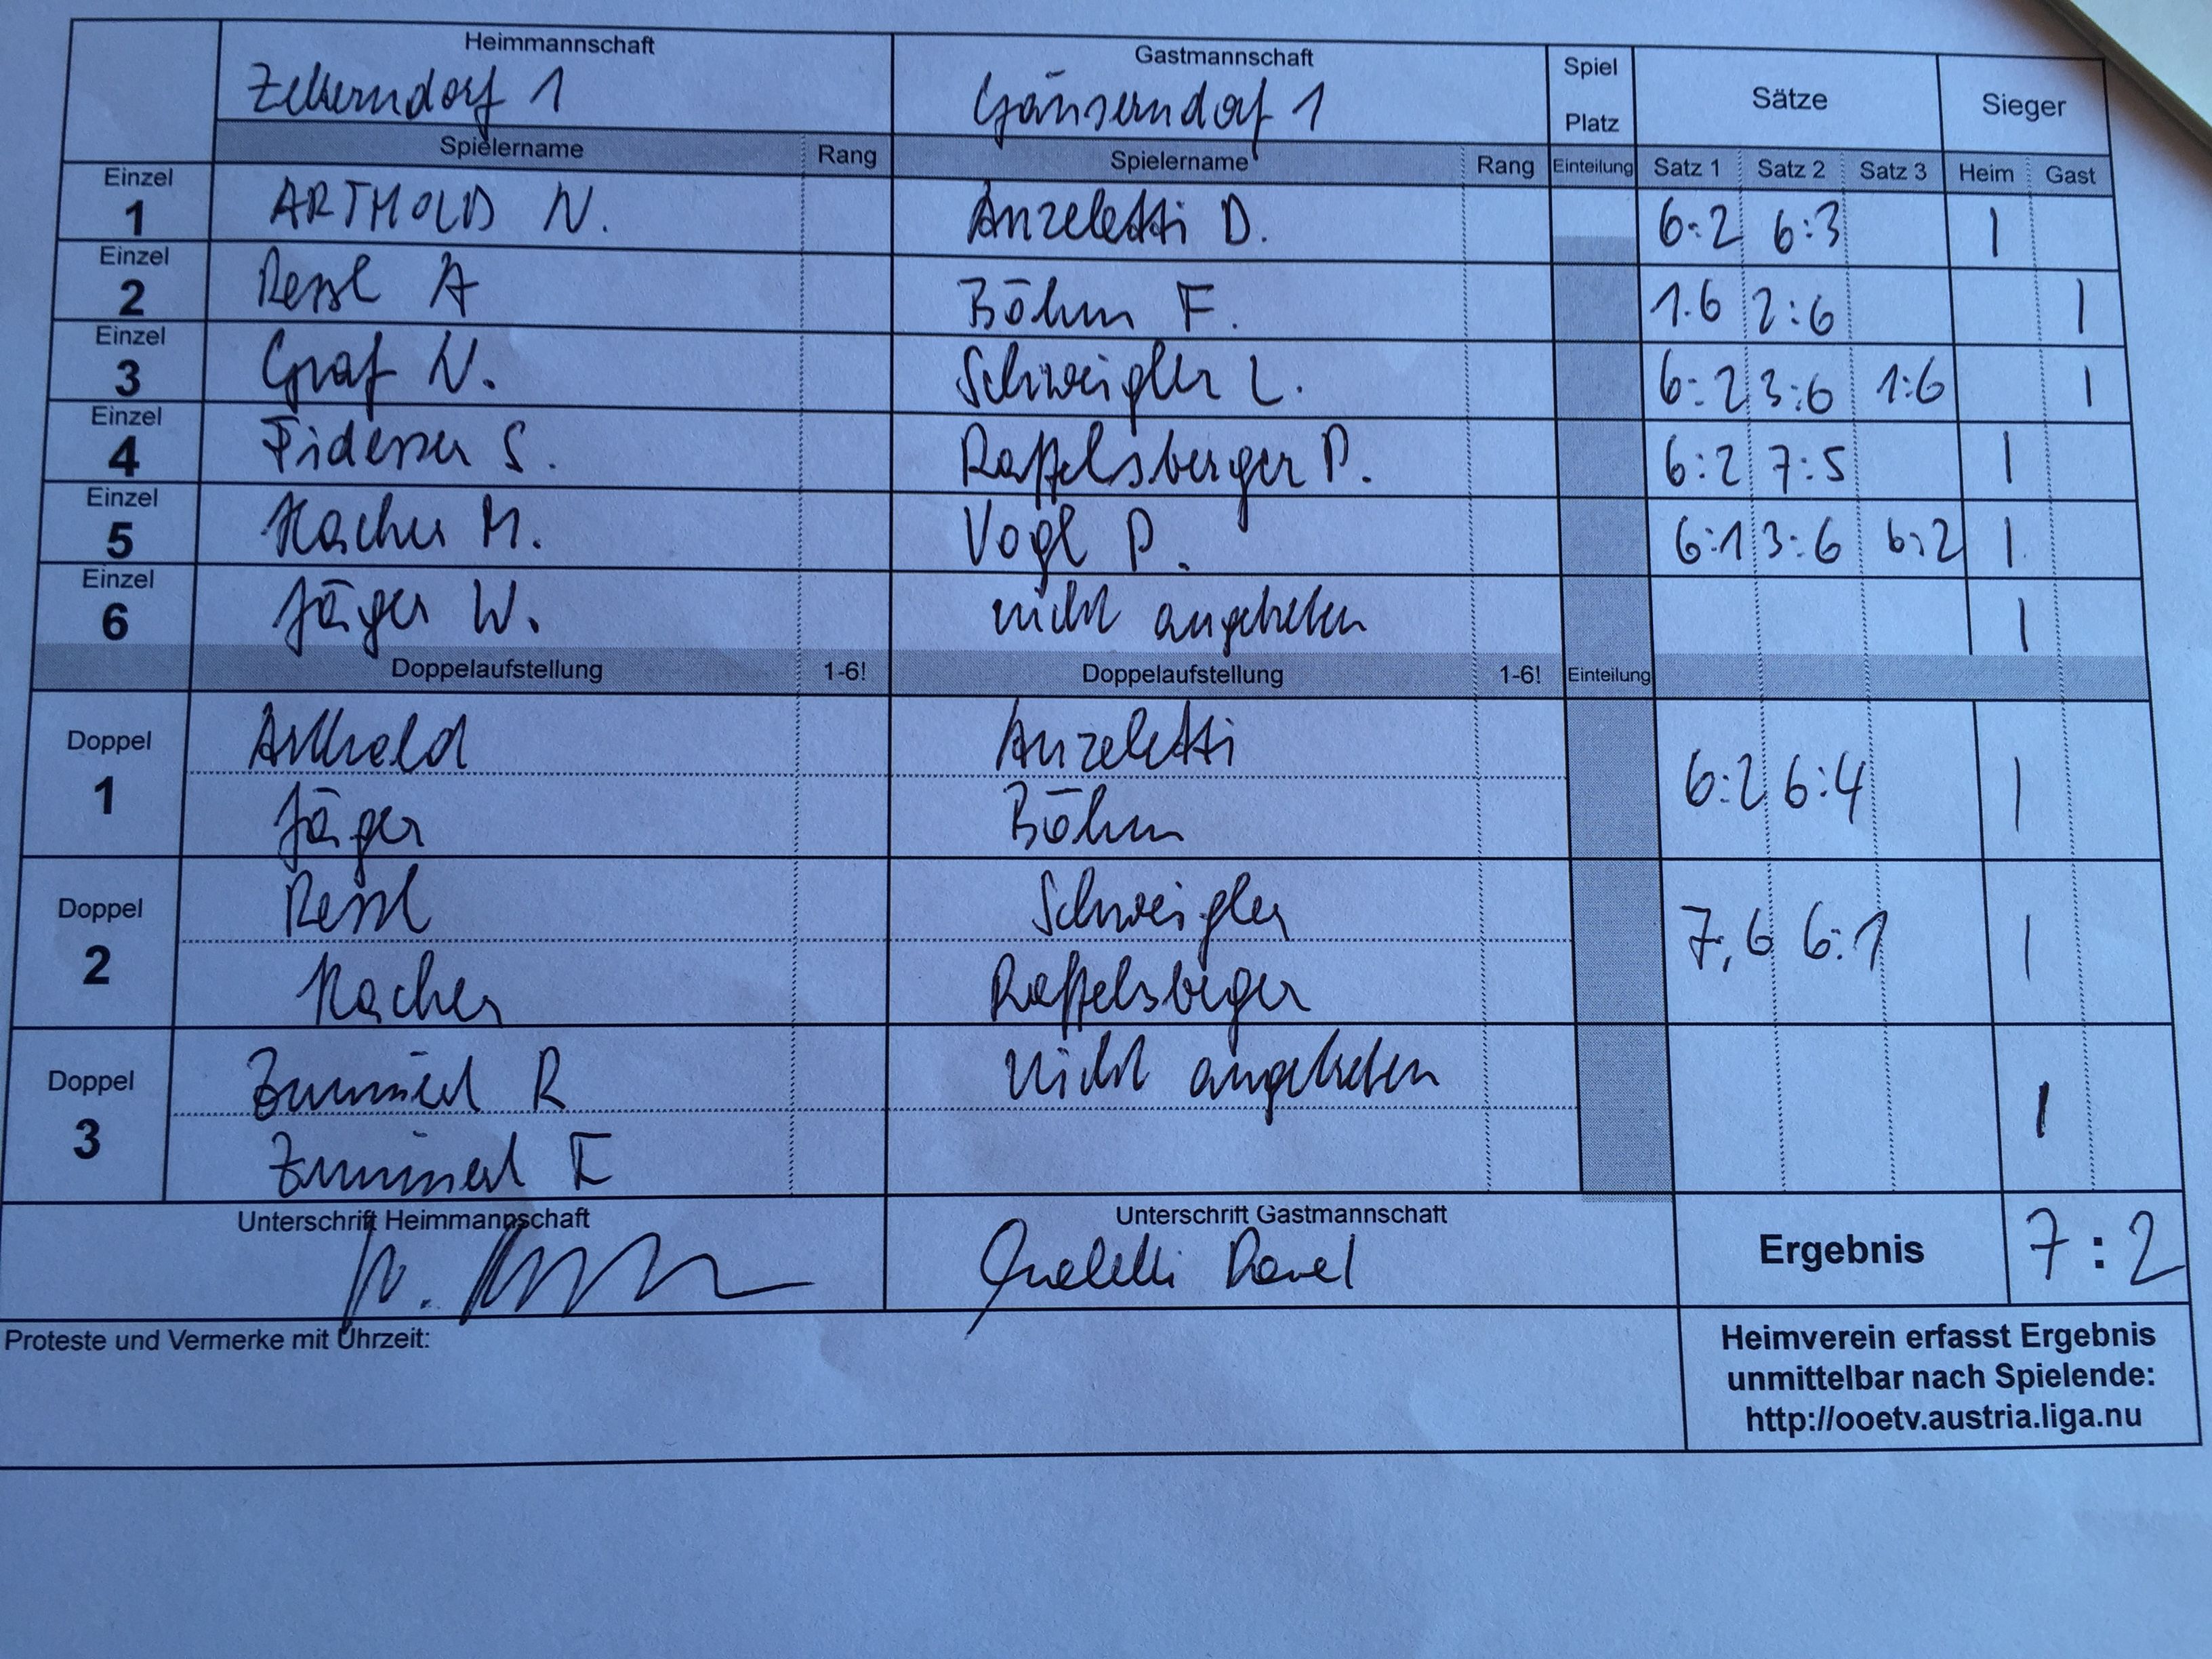 Heimmannschaft Gastmannschaft Spiel Platz Sätze Sieger
Zellerndorf 1 Gänserndorf 1
Spielername Rang Spielername Rang Einteilung Satz 1 Satz 2 Satz 3 Heim Gast
Einzel 1 ARTHOLD N. Anzeletti D. 6:2 6:3 1
Einzel 2 Ressl A Böhm F. 1:6 2:6 1
Einzel 3 Graf N. Schweigler L. 6:2 3:6 1:6 1
Einzel 4 Fidesser S. Raffelsberger P. 6:2 7:5 1
Einzel 5 M. Vogl P. 6:1 3:6 6:2 1
Einzel 6 Jäger W. nicht angetreten 1
Doppelaufstellung 1-6! Doppelaufstellung 1-6! Einteilung
Doppel 1 Arthold Anzeletti 6:2 6:4 1
Jäger Böhm
Doppel 2 Ressl Schweigler 7:6 6:1 1
Raffelsberger
Doppel 3 R nicht angetreten 1
E
Unterschrift Heimmannschaft Unterschrift Gastmannschaft Ergebnis 7:2
Proteste und Vermerke mit Uhrzeit:
Heimverein erfasst Ergebnis
unmittelbar nach Spielende:
http://ooetv.austria.liga.nu